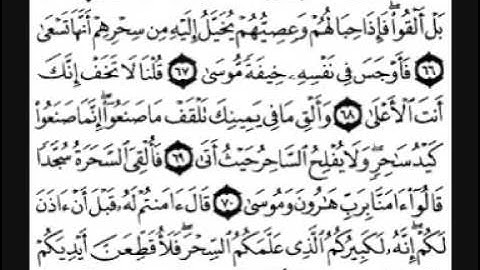 بَلْ أَلْقُوا۟ ۖ فَإِذَا حِبَالُهُمْ وَعِصِيُّهُمْ يُخَيَّلُ إِلَيْهِ مِن سِحْرِهِمْ أَنَّهَا تَسْعَىٰ
٦٦ فَأَوْجَسَ فِى نَفْسِهِۦ خِيفَةً مُّوسَىٰ ٦٧ قُلْنَا لَا تَخَفْ إِنَّكَ
أَنتَ ٱلْأَعْلَىٰ ٦٨ وَأَلْقِ مَا فِى يَمِينِكَ تَلْقَفْ مَا صَنَعُوٓا۟ ۖ إِنَّمَا صَنَعُوا۟
كَيْدُ سَٰحِرٍ ۖ وَلَا يُفْلِحُ ٱلسَّاحِرُ حَيْثُ أَتَىٰ ٦٩ فَأُلْقِىَ ٱلسَّحَرَةُ سُجَّدًا
قَالُوٓا۟ ءَامَنَّا بِرَبِّ هَٰرُونَ وَمُوسَىٰ ٧٠ قَالَ ءَامَنتُمْ لَهُۥ قَبْلَ أَنْ ءَاذَنَ
لَكُمْ ۖ إِنَّهُۥ لَكَبِيرُكُمُ ٱلَّذِى عَلَّمَكُمُ ٱلسِّحْرَ ۖ فَلَأُقَطِّعَنَّ أَيْدِيَكُمْ